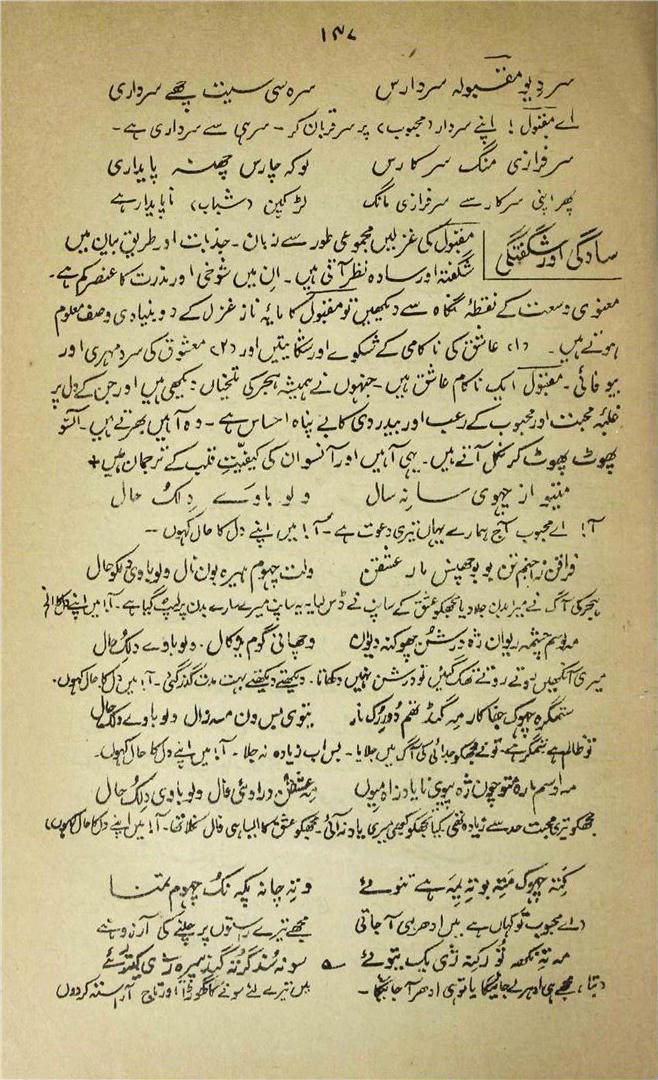 ۱۳۷
سر دِیو مقبولہ سردارس سرہ سی سیت چھے سرداری
اے مقبول! اپنے سردار (محبوب) پر سر قربان کر - سر ہی سے سرداری ہے -
سرفرازی منگ سرکارس لوکہ چارس چھنہ پایداری
پھر اپنی سرکار سے سرفرازی مانگ لڑکپن (شباب) ناپایدار ہے
سادگی اور شگفتگی
مقبول کی غزلیں مجموعی طور سے زبان - جذبات اور طریق بیان میں
شگفتہ اور سادہ نظر آتی ہیں - ان میں شوخی اور ندرت کا عنصر کم ہے -
معنوی وسعت کے نقطۂ نگاہ سے دیکھیں تو مقبول کا مایۂ ناز غزل کے دو بنیادی وصف معلوم
ہوتے ہیں - (۱) عاشق کی ناکامی کے شکوے اور شکایتیں اور (۲) معشوق کی سرد مہری اور
بیوفائی - مقبول ایک ناکام عاشق ہیں - جنہوں نے ہمیشہ ہجر کی تلخیاں دیکھی ہیں اور جن کے دل پر
غلبۂ محبت اور محبوب کے رعب اور بیدردی کا بے پناہ احساس ہے - وہ آہیں بھرتے ہیں - آنسو
پھوٹ پھوٹ کر نکل آتے ہیں - یہی آہیں اور آنسو ان کی کیفیتِ قلب کے ترجمان ہیں +
متیو از چھوی سانہ سال ولو باوے دِلک حال
آ! اے محبوب آج ہمارے یہاں تیری دعوت ہے - آ! میں اپنے دل کا حال کہوں --
فراقن نہ جنم تن بو چھپنس مار عشقن ولو باوی دلکو حال
ہجر کی آگ نے میرا بدن جلا دیا مجھکو عشق کے سانپ نے ڈس لیا - یہ سانپ میرے سارے بدن پر لپٹ گیا ہے - آ! میں اپنے دل کا حال
چشمہ ریوان ژہ درشن چھوکنہ دیوان وچھانی گوم کال - ولو باوے دلک حال
میری آنکھیں روتے روتے تھک گئیں تو درشن نہیں دکھاتا - دیکھتے دیکھتے بہت مدت گذر گئی - آ! میں دل کا حال کہوں -
ستمگرہ چھوک جفاکار مہ دور نار بیوی بس ون مسہ زال ولو باوے دلک حال
تو ظالم ہے ستمگر ہے - تو نے مجھکو جدائی کی آگ میں جلایا - بس اب زیادہ نہ جلا - آ! میں اپنے دل کا حال کہوں -
مہ اوسم ژہ پیوی نا یاد مہ عشقن درادئی فال ولو باوی دلک حال
مجھکو تیری محبت حد سے زیادہ تھی کیا تجھکو کبھی میری یاد نہ آئی - مجھکو عشق کا ایسا ہی فال نکلا تھا - آ! میں اپنے دل کا حال کہوں)
کتہ چھوک متہ بوتہ یمہ ہے وتہ چانہ پکہ نک چھوم تمنا
(اے محبوب تو کہاں ہے میں ادھر ہی آ جاتی مجھے تیرے رستوں پر چلنے کی آرزو ہے
مہ تہ نکھہ تو رکتہ ژی یک سونہ سند گرتہ
بتا، مجھے ہی ادھر لے جائیگا یا تو ہی ادھر آ جائیگا - میں تیرے لئے سونے کا گھوڑا، اور تاج آراستہ کردوں